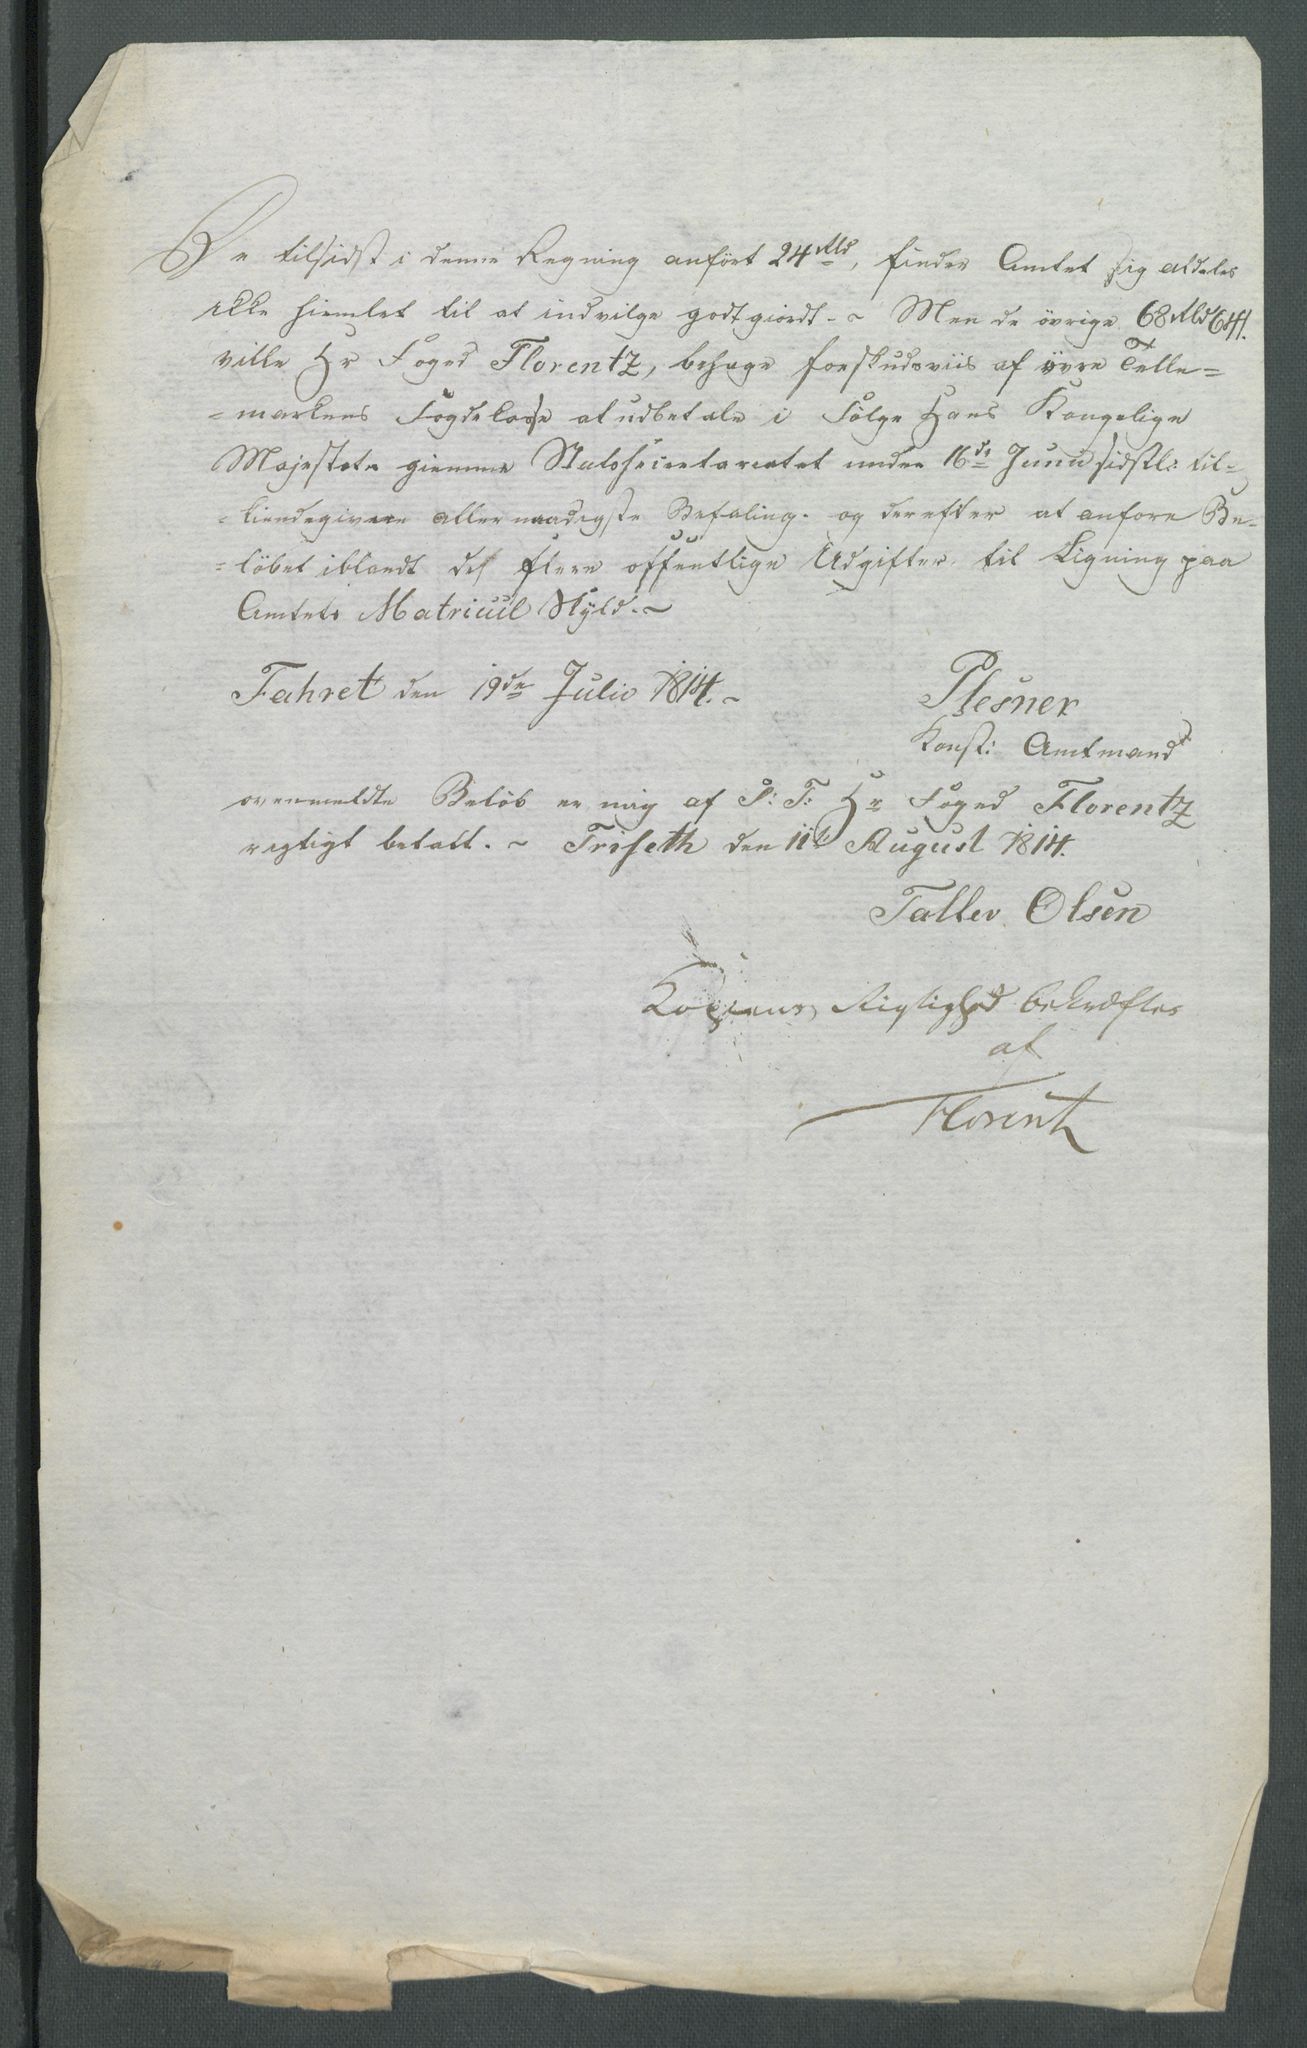 De tilsidst i denne Regning anført 24 Rbd, finder Amtet sig aldeles
ikke hiemlet til at indvilge godtgiordt. ~ Men de övrige 68 Rbd 64 ß.
ville Hr Foged Florentz, behage forskudsviis af övre Telle=
=markens Fogdekasse at udbetale i Fölge Hans Kongelige
Majestets giennem Statssecretariatet under 16de Junii sidstl: til=
=kiendegivne allernaadigste Befaling. og derefter at anföre Be=
=löbet iblandt de flere offentlige Udgifter til Ligning paa
Amtets Matricul Skyld. ~
Fahret den 19de Julio 1814. ~
Plesner
Konst: Amtmand
ovenmeldte Belöb er mig af S: T: Hr Foged Florentz
rigtigt betalt. ~ Triseth den 11te August 1814.
Tallev Olsen
Kopiens Rigtighed bekræftes
af
Florentz